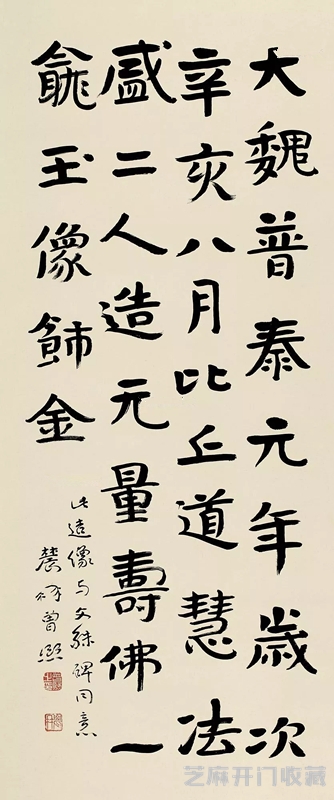 大魏普泰元年歲次
辛亥八月比丘道慧法
盛二人造元量壽佛一
龕玉像飾金
此造像与文殊碑同意
農髯曾熙
芝麻开门收藏